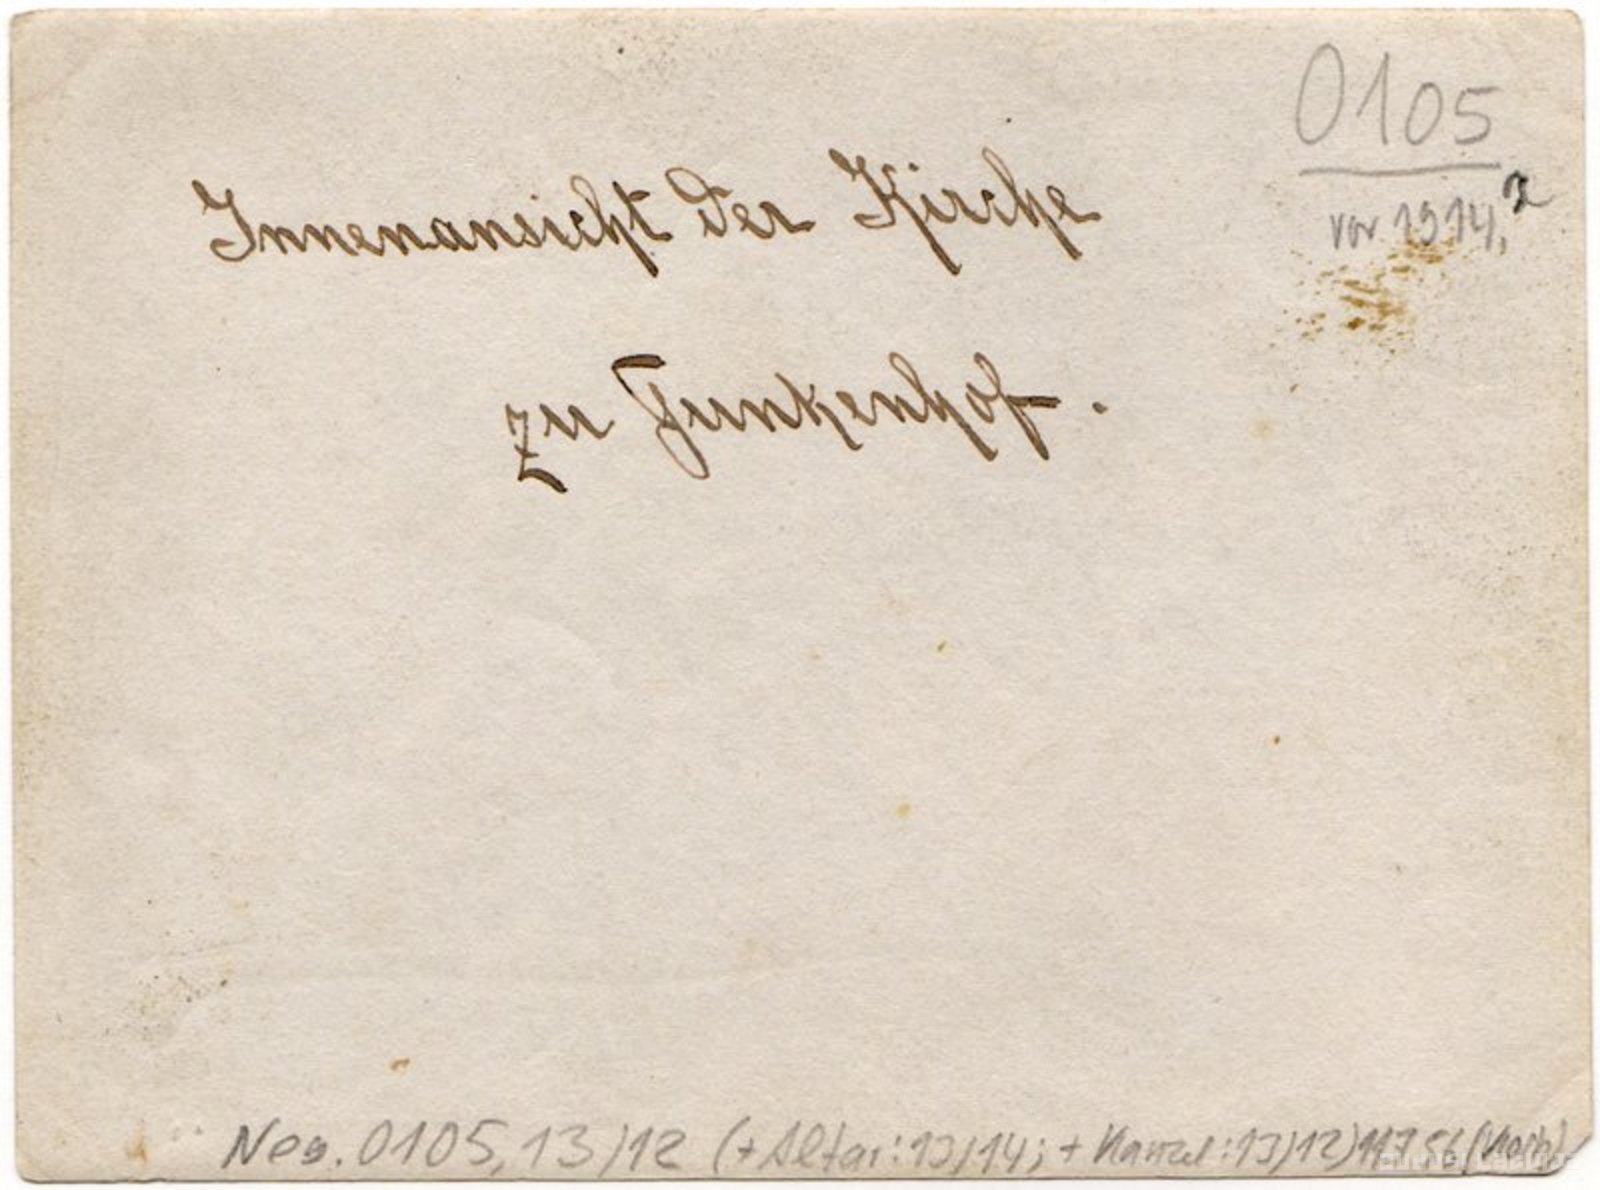 0105
vor 1914,
Innenansicht der Kirche
zu Funkenhof.
Neg. 0105, 13/12 (+ Altar: 13/14; + Kanzel: 13/12)